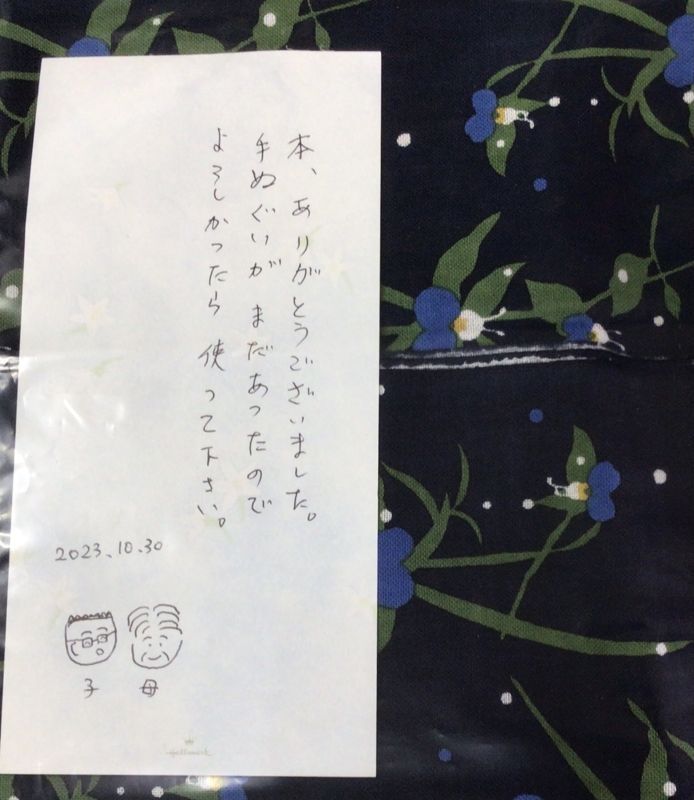 本、ありがとうございました。
手ぬぐいが まだあったので
よろしかったら 使って下さい。
2023.10.30
子 母
Hallmark